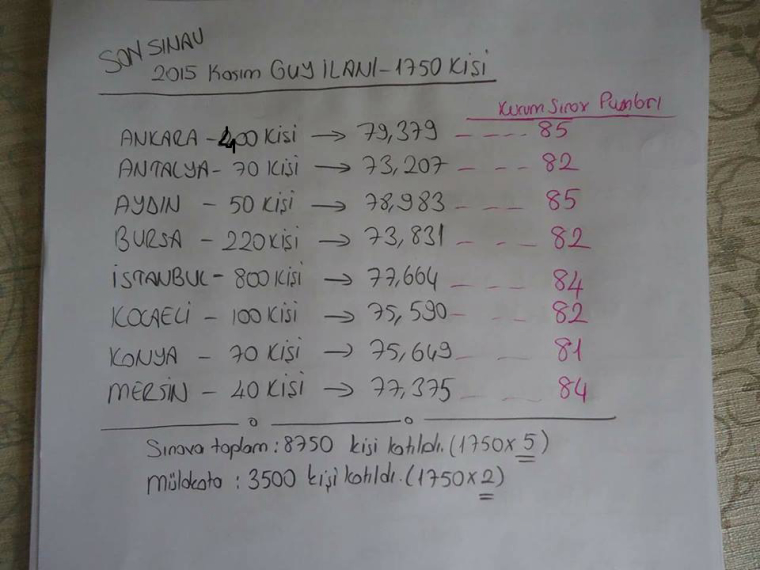 SON SINAV
2015 Kasım GUY İLANI - 1750 KİŞİ
Kurum Sınav Puanları
ANKARA - 400 KİŞİ → 79,379 - - - - 85
ANTALYA - 70 KİŞİ → 73,207 - - - 82
AYDIN - 50 KİŞİ → 78,983 - - - 85
BURSA - 220 KİŞİ → 73,831 - - - 82
İSTANBUL - 800 KİŞİ → 77,664 - - - 84
KOCAELİ - 100 KİŞİ → 75,590 - - - 82
KONYA - 70 KİŞİ → 75,649 - - - 81
MERSİN - 40 KİŞİ → 77,375 - - - 84
Sınava toplam : 8750 kişi katıldı. (1750 x 5)
mülakata : 3500 kişi katıldı. (1750 x 2)